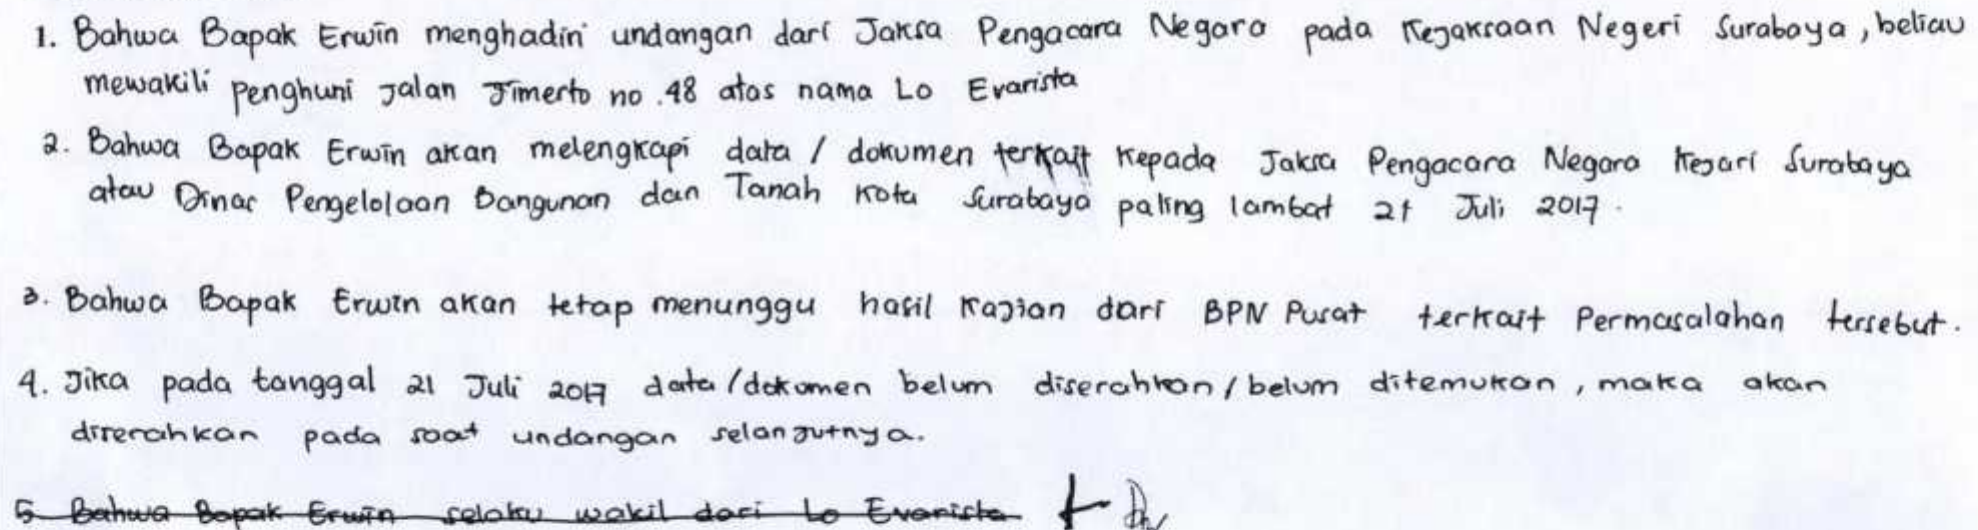 1. Bahwa Bapak Erwin menghadiri undangan dari Jaksa Pengacara Negara pada Kejaksaan Negeri Surabaya, beliau
mewakili penghuni jalan Jimerto no. 48 atas nama Lo Evarista
2. Bahwa Bapak Erwin akan melengkapi data / dokumen terkait kepada Jaksa Pengacara Negara Kejari Surabaya
atau Dinas Pengelolaan Bangunan dan Tanah Kota Surabaya paling lambat 21 Juli 2017.
3. Bahwa Bapak Erwin akan tetap menunggu hasil kajian dari BPN Pusat terkait Permasalahan tersebut.
4. Jika pada tanggal 21 Juli 2017 data/dokumen belum diserahkan/belum ditemukan, maka akan
diserahkan pada saat undangan selanjutnya.
5 Bahwa Bapak Erwin selaku wakil dari Lo Evarista